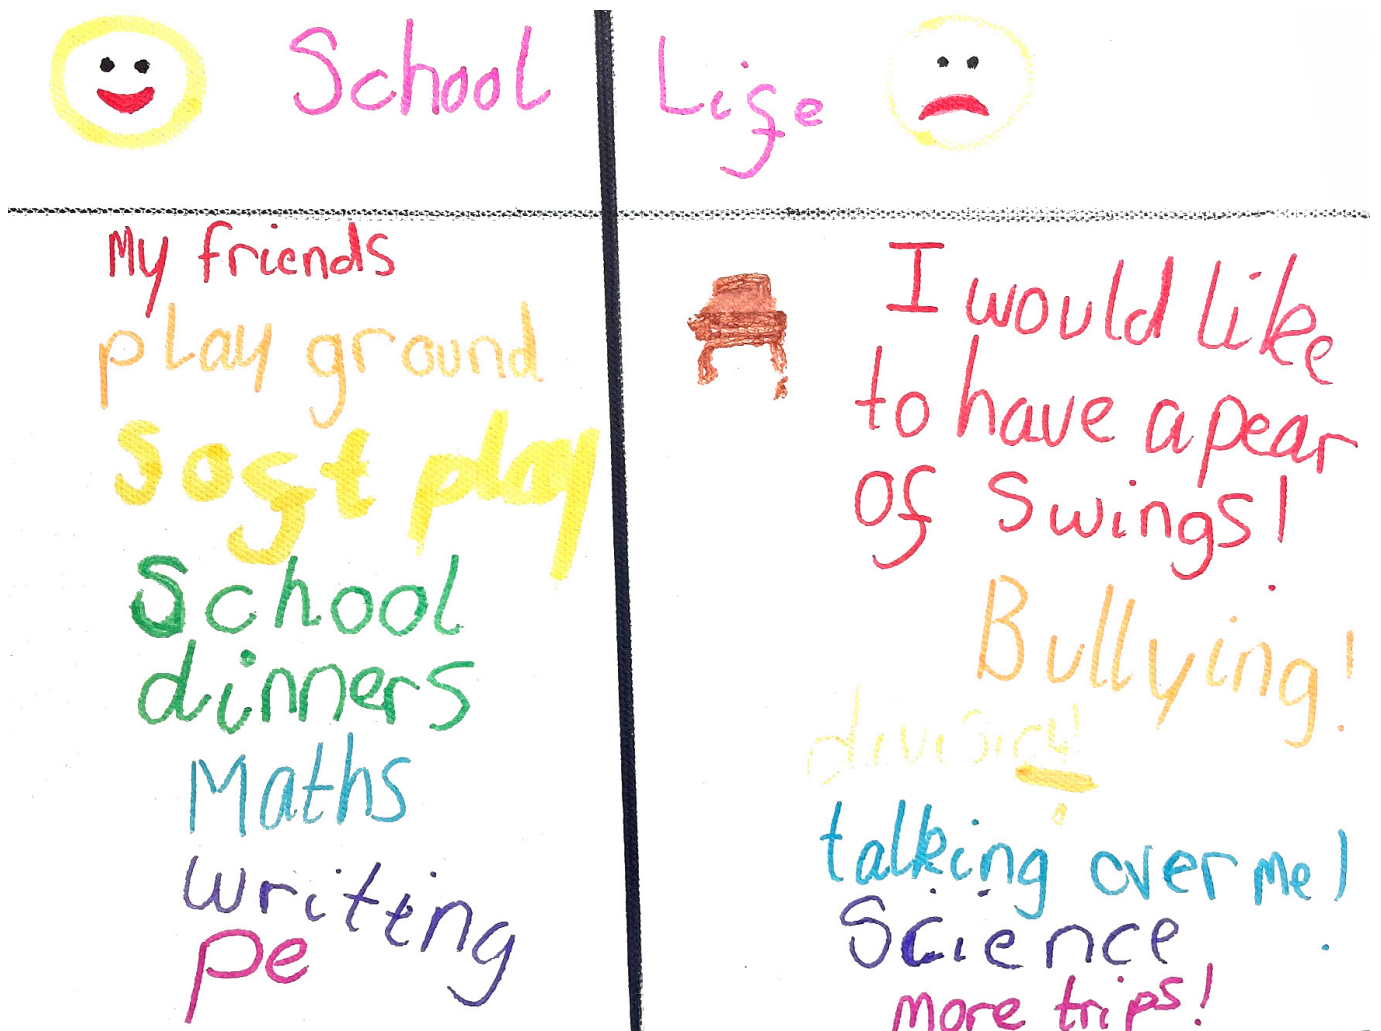 School Life
My friends
play ground
soft play
School
dinners
Maths
writing
pe
I would like
to have a pear
of Swings!
Bullying!
talking over me!
Science
more trips!